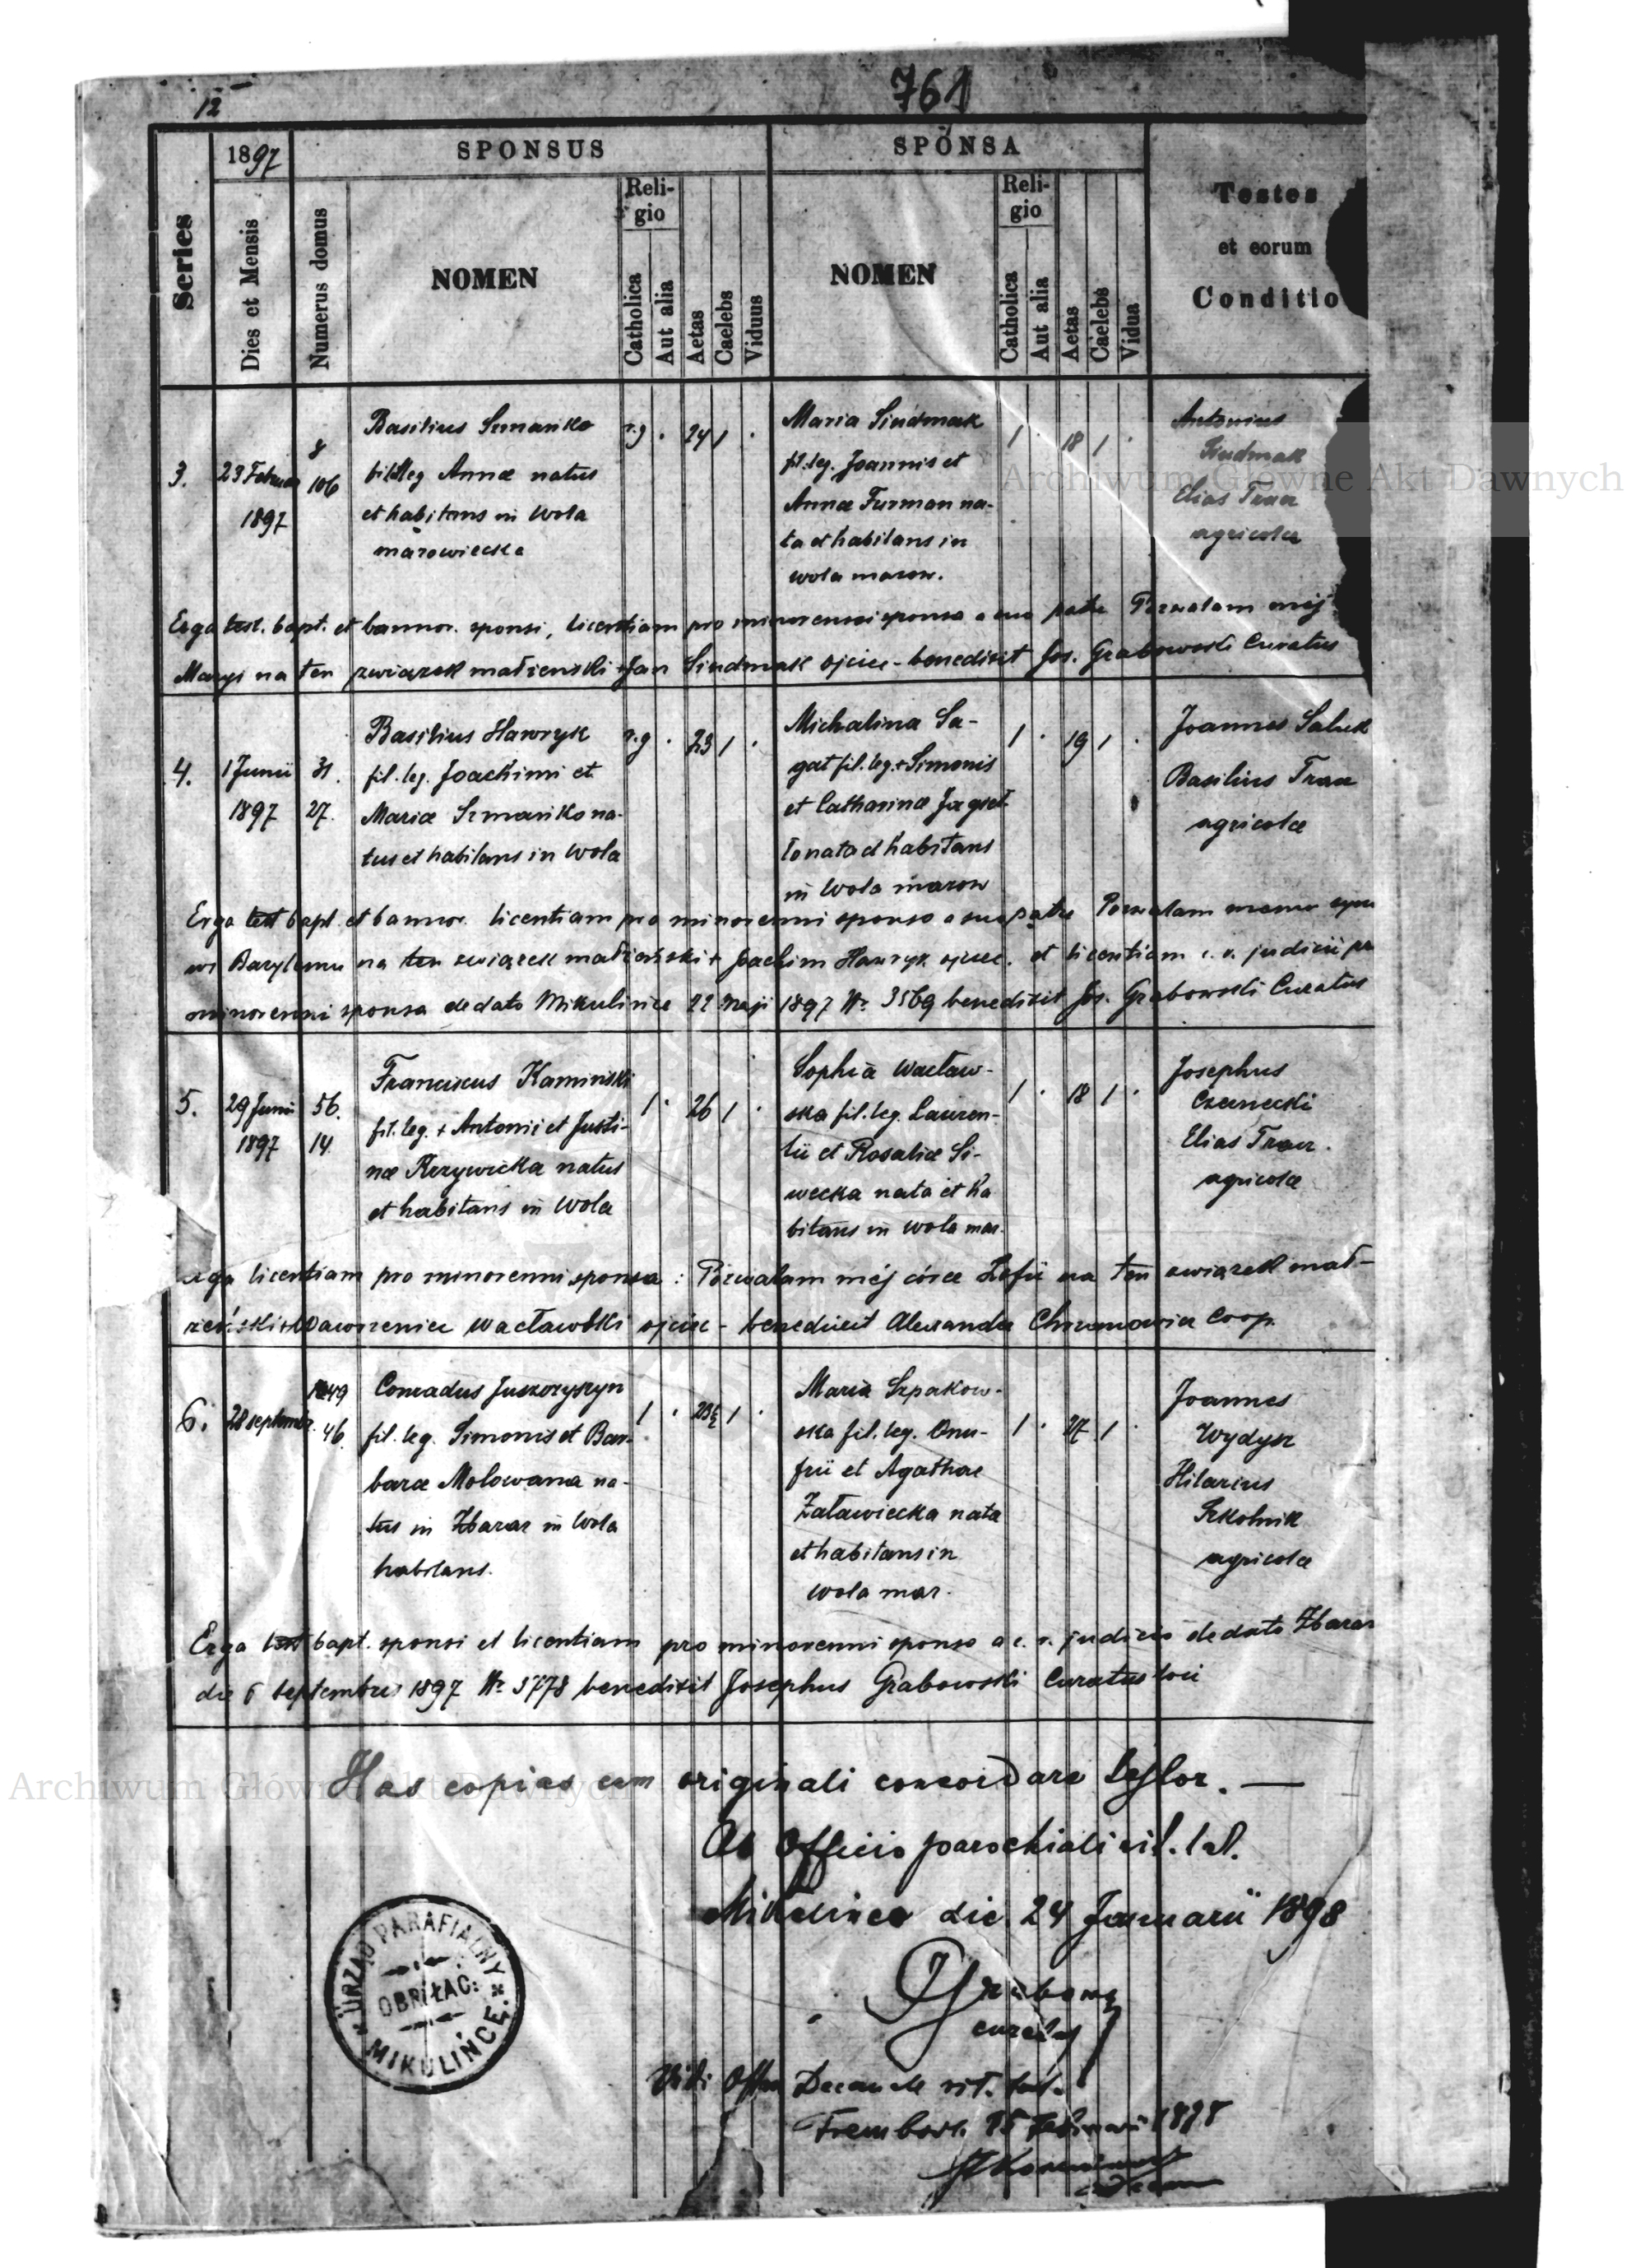 12
761
1897
SPONSUS
SPONSA
Series
Dies et Mensis
Numerus domus
NOMEN
Reli-
gio
Catholica
Aut alia
Aetas
Caelebs
Viduus
NOMEN
Reli-
gio
Catholica
Aut alia
Aetas
Caelebs
Vidua
Testes
et eorum
Conditio
3.
23 Februar
1897
8
106
Basilius Szmańko
fil. leg. Annæ natus
et habitans in Wola
mazowiecka
r.g. 24 1
Maria Sindmak
fil. leg. Joannis et
Annæ Furman na-
ta et habitans in
Wola mazow.
1 18 1
Antonius
Sindmak
Elias Tracz
agricolæ
Erga test. bapt. et bannor. sponsi, licentiam pro minorenni sponsa a suo patre Pozwalam mej
Maryi na ten związek małżeński + Jan Sindmak ojciec - benedixit Jos. Grabowski Curatus
4.
1 Junii
1897
31.
27.
Basilius Hawryk
fil. leg. Joachimi et
Mariæ Szmańko na-
tus et habitans in Wola
r.g. 23 1
Michalina Sa-
gat fil. leg. + Simonis
et Catharinæ
nata et habitans
in Wola mazow
1 19 1
Joannes
Basilius Tracz
agricolæ
Erga test bapt. et bannor. licentiam pro minorenni sponso a suo patre Pozwalam memu syno
wi Bazylemu na ten związek małżeński + Joachim Hawryk ojciec. et licentiam c. r. judicii pro
minorenni sponsa de dato Mikulińce 22 Maji 1897 Nr 3569 benedixit Jos. Grabowski Curatus
5.
29 Junii
1897
56.
14.
Franciscus Kaminski
fil. leg. + Antonii et Justi-
næ Krzywicka natus
et habitans in Wola
1 26 1
Sophia Wacław-
ska fil. leg. Lauren-
tii et Rosaliæ Si-
wecka nata et ha
bitans in Wola maz.
1 18 1
Josephus
Czarnecki
Elias Tracz.
agricolæ
Erga licentiam pro minorenni sponsa: Pozwalam mej córce Zofii na ten związek mał-
żeński + Wawrzeniec Wacławski ojciec - benedixit Alexander Chrzanowicz Coop.
6.
28 septembr.
49
46.
Conradus Juszczyszyn
fil. leg. Simonis et Bar-
baræ Molowana na-
tus in Zbaraz in Wola
habitans.
1 23½ 1
Maria Szpakow-
ska fil. leg. Onu-
frii et Agathæ
Załawiecka nata
et habitans in
Wola maz.
1 27 1
Joannes
Wydysz
Hilarius
Szkolnik
agricolæ
Erga test bapt. sponsi et licentiam pro minorenni sponso a c. r. judicio de dato Zbaraz
die 6 septembris 1897 Nr 5778 benedixit Josephus Grabowski Curatus loci
Has copias cum originali concordare testor. —
Ab Officio parochiali rit. lat.
Mikulińce die 24 Januarii 1898
curatus
URZĄD PARAFIALNY
OBR. ŁAC:
MIKULIŃCE.
Vidi Offm Decanale rit. lat.
Trembowl. 15 Februarii 1898
Archiwum Główne Akt Dawnych
Archiwum Główne Akt Dawnych